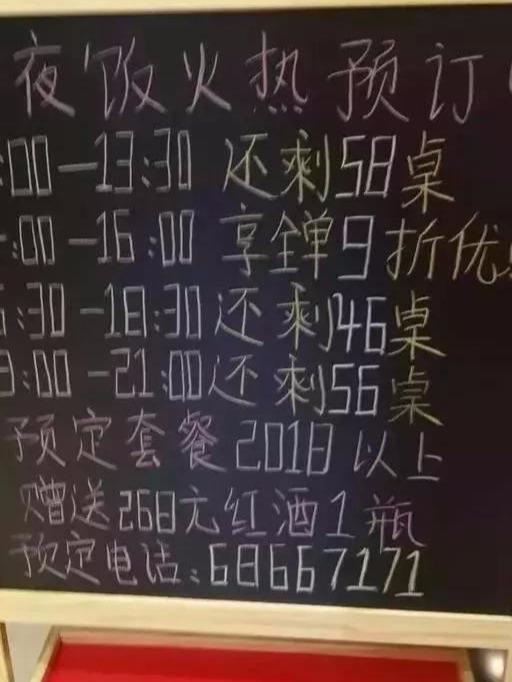 夜饭火热预订
:00-13:30 还剩58桌
:00-16:00 享全单9折优
:30-18:30 还剩46桌
:00-21:00 还剩56桌
预定套餐2018以上
赠送268元红酒1瓶
预定电话:68667171